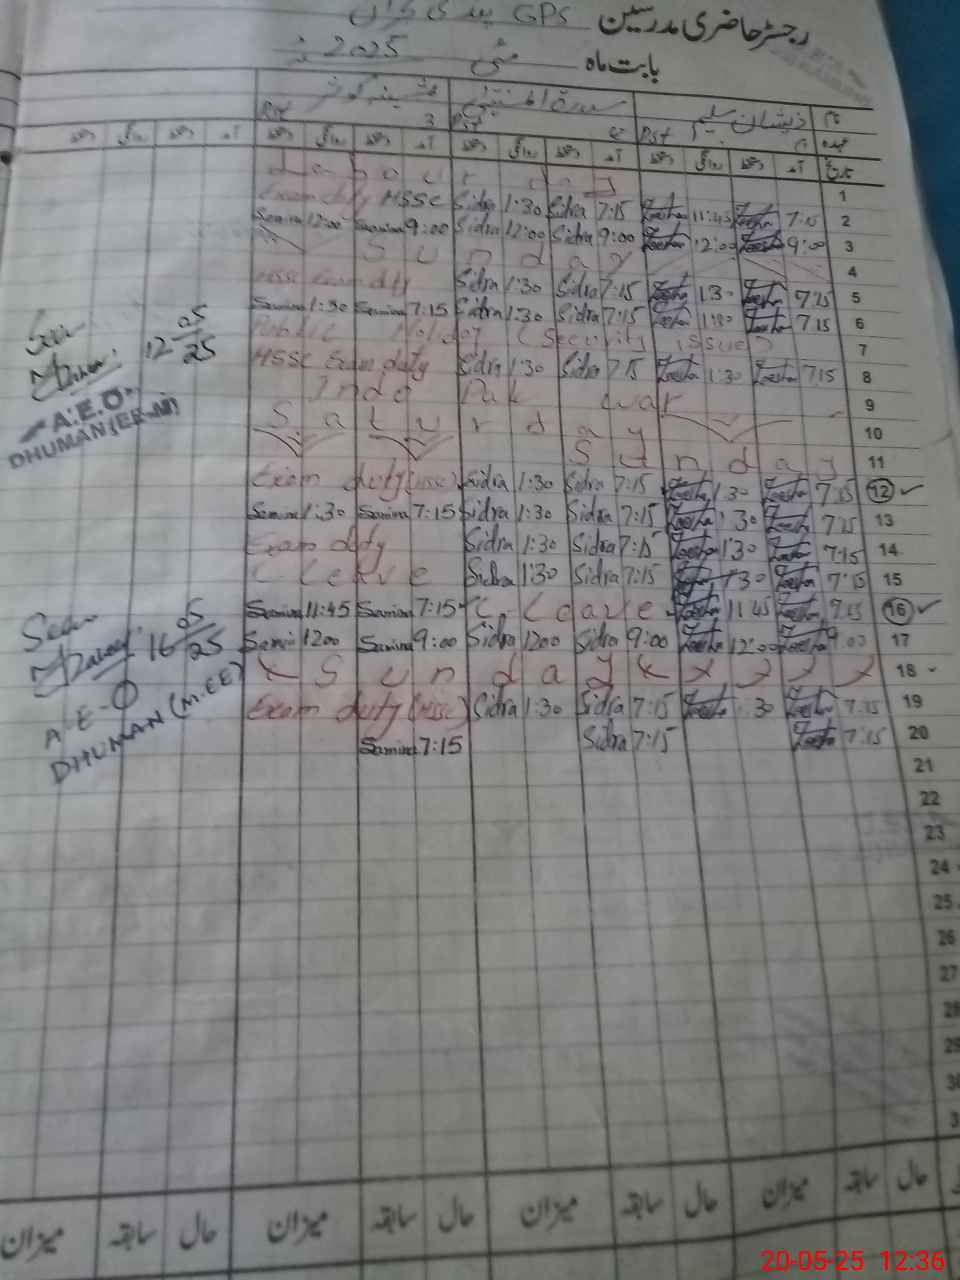 رجسٹر حاضری مدرسین GPS
بابت ماہ مئی 2025ء
نام ذیشان سلیم سدرۃ المنتہیٰ
عہدہ Pst Pst Pst
تاریخ آمد دستخط روانگی دستخط آمد دستخط روانگی دستخط آمد دستخط روانگی دستخط آمد دستخط روانگی دستخط
Labour day 1
Exam duty HSSC Sidra 1:30 Sidra 7:15 Zeesha 11:45 Zeesha 7:15 2
Samina 12:00 Samina 9:00 Sidra 12:00 Sidra 9:00 Zeesha 12:00 Zeesha 9:00 3
Sunday 4
HSSC Exam duty Sidra 1:30 Sidra 7:15 Zeesha 1:30 Zeesha 7:15 5
Samina 1:30 Samina 7:15 Sidra 1:30 Sidra 7:15 Zeesha 1:30 Zeesha 7:15 6
Public Holiday (Security issue) 7
HSSC Exam duty Sidra 1:30 Sidra 7:15 Zeesha 1:30 Zeesha 7:15 8
Indo Pak war 9
Saturday 10
Sunday 11
Exam duty (HSSC) Sidra 1:30 Sidra 7:15 Zeesha 1:30 Zeesha 7:15 12 ✓
Samina 1:30 Samina 7:15 Sidra 1:30 Sidra 7:15 Zeesha 1:30 Zeesha 7:15 13
Exam duty Sidra 1:30 Sidra 7:15 Zeesha 1:30 Zeesha 7:15 14
C Leave Sidra 1:30 Sidra 7:15 Zeesha 1:30 Zeesha 7:15 15
Samina 11:45 Samina 7:15 C. Leave Zeesha 11:45 Zeesha 7:15 16 ✓
Samina 12:00 Samina 9:00 Sidra 12:00 Sidra 9:00 Zeesha 12:00 Zeesha 9:00 17
Sunday 18
Exam duty (HSSC) Sidra 1:30 Sidra 7:15 Zeesha 1:30 Zeesha 7:15 19
Samina 7:15 Sidra 7:15 Zeesha 7:15 20
21
22
23
24
25
26
27
28
29
30
3
Seen
12 05/25
A.E.O
DHUMAN (EE-M)
Seen
16 05/25
A-E-O
DHUMAN (M-EE)
حال سابقہ میزان حال سابقہ میزان حال سابقہ میزان حال سابقہ میزان
20-05-25 12:36